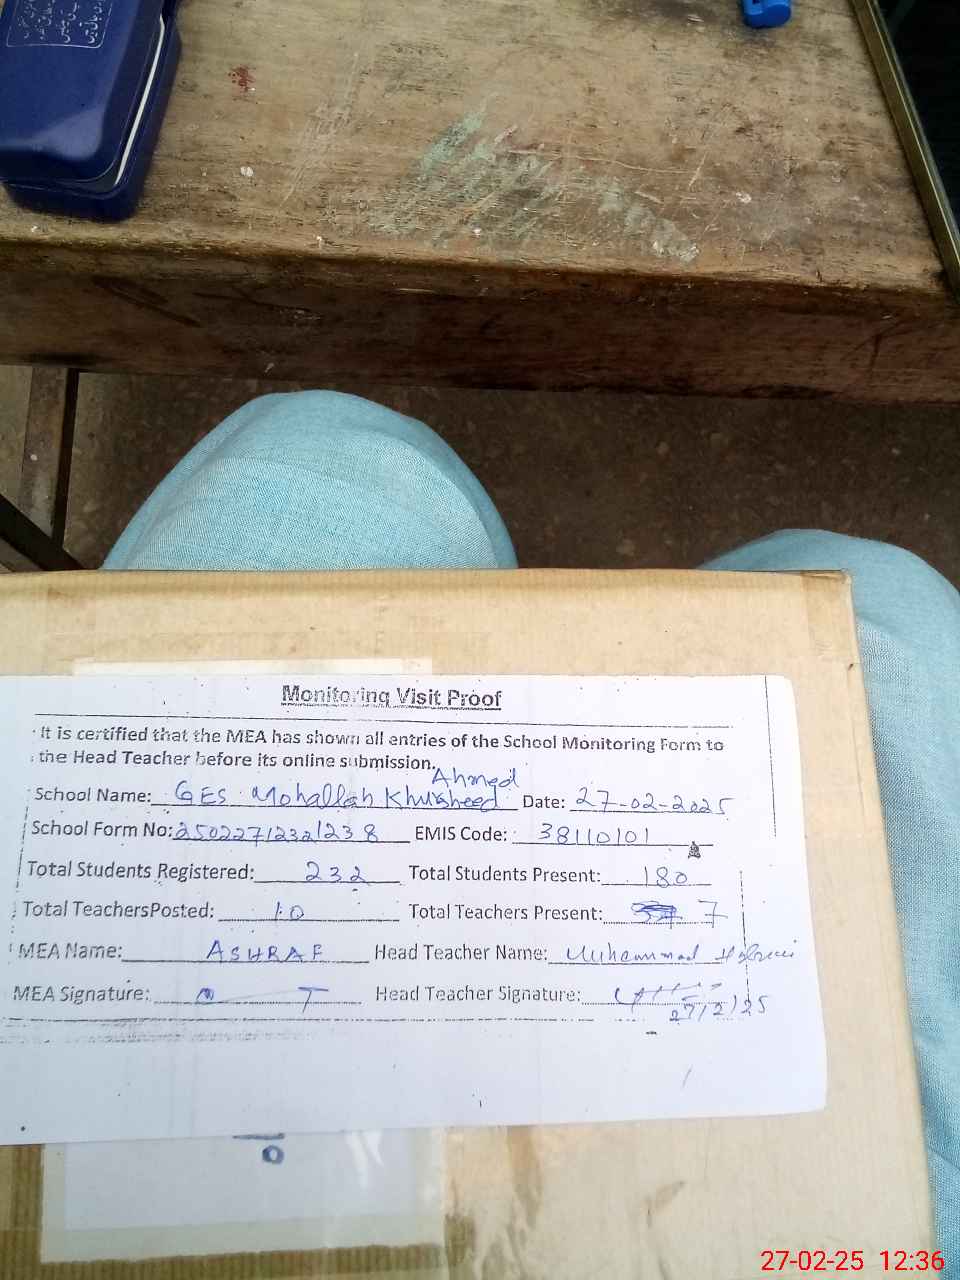 Monitoring Visit Proof
It is certified that the MEA has shown all entries of the School Monitoring Form to
the Head Teacher before its online submission.
School Name: GES Mohallah Khursheed Ahmed Date: 27-02-2025
School Form No: 25022712321238 EMIS Code: 38110101
Total Students Registered: 232 Total Students Present: 180
Total TeachersPosted: 10 Total Teachers Present: 7
MEA Name: ASHRAF Head Teacher Name: Muhammad
MEA Signature: Head Teacher Signature:
27/2/25
27-02-25 12:36